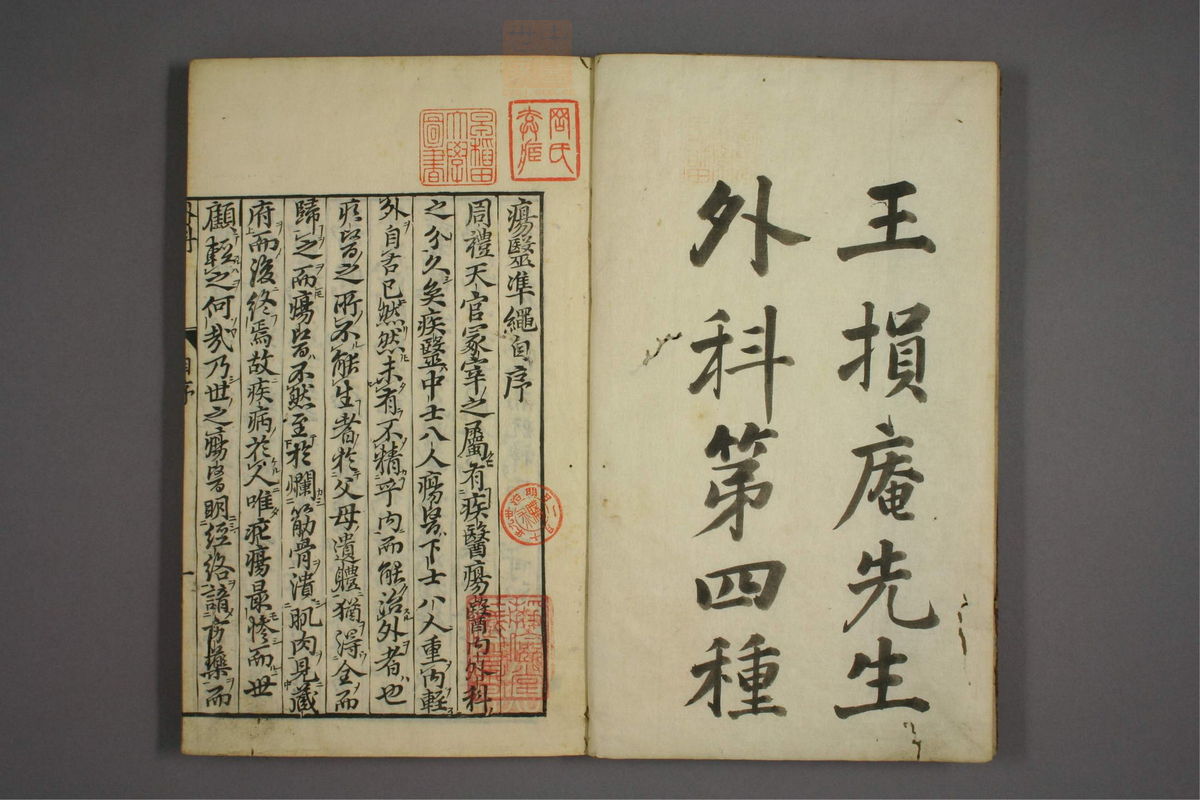 王損庵先生
外科第四種
瘍醫準繩自序
周禮天官冢宰之屬有疾醫瘍醫內外科
之分久矣疾醫中士八人瘍醫下士八人重內輕
外自古已然然未有不精乎內而能治外者也
疾醫之所不能生者於父母遺體猶得全而
歸之而瘍醫不然至於爛筋骨潰肌肉見藏
府而後終焉故疾病於人唯疕瘍最慘而世
顧輕之何哉乃世之瘍醫明經絡諳方藥而
自序
一
早稻田大學圖書